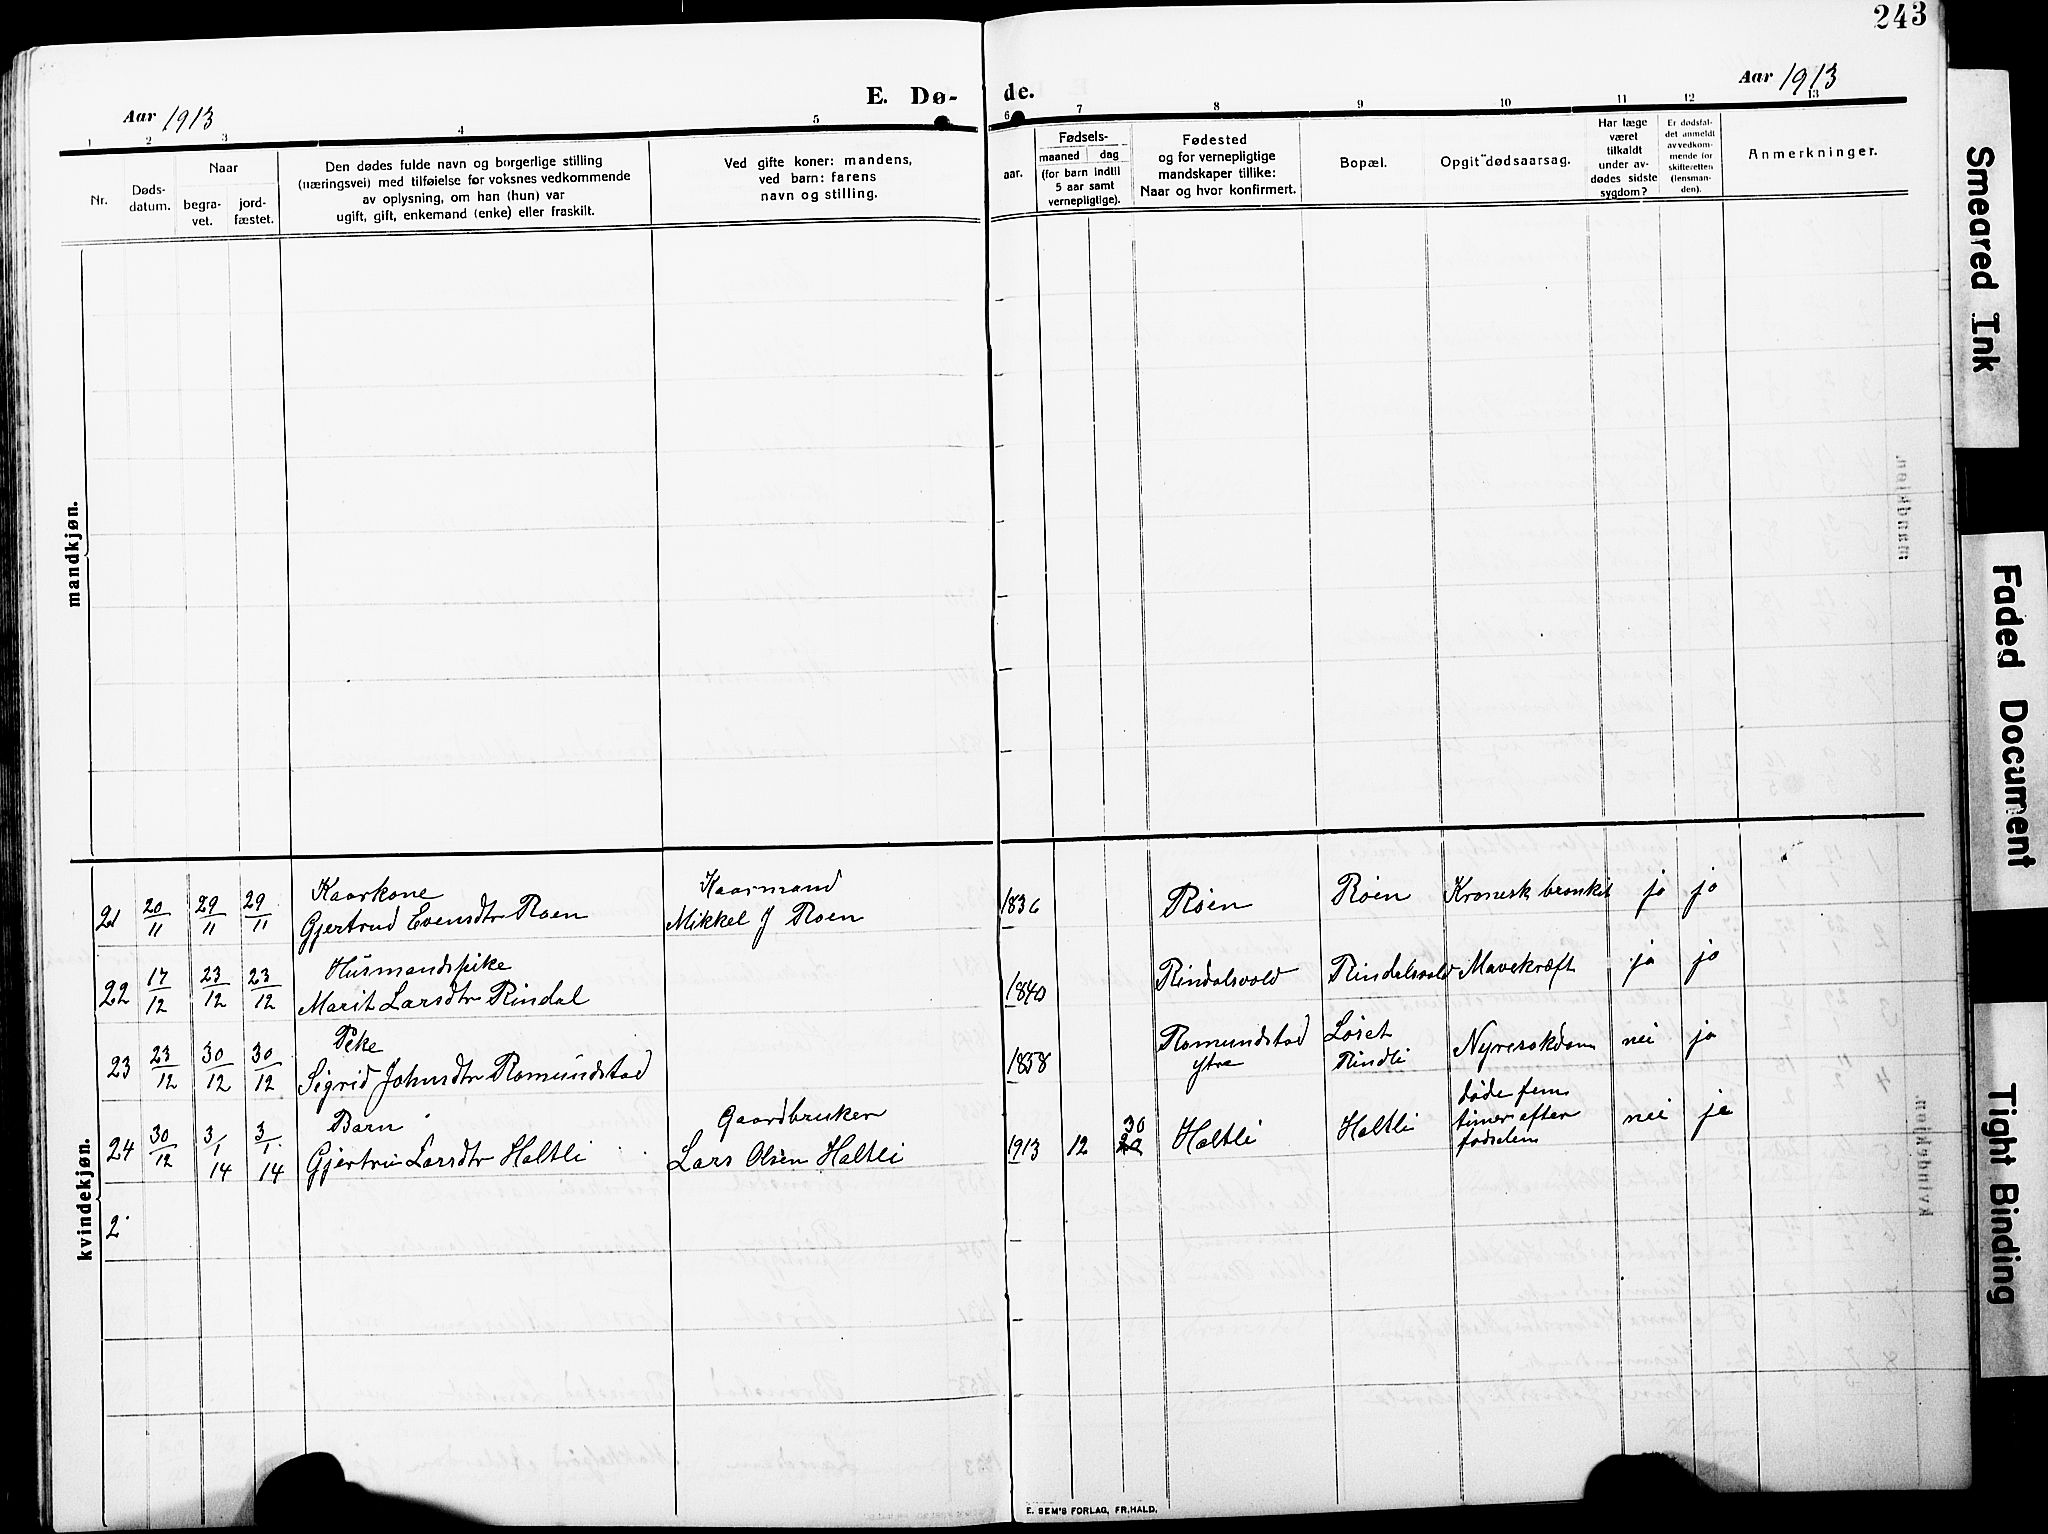 243
Aar 1913
E. Dø-
de.
Aar 1913
1 2 3 4 5
6 7 8 9 10 11 12 13
Nr.
Døds-
datum.
Naar
begra-
vet.
jord-
fæstet.
Den dødes fulde navn og borgerlige stilling
(næringsvei) med tilføielse for voksnes vedkommende
av oplysning, om han (hun) var
ugift, gift, enkemand (enke) eller fraskilt.
Ved gifte koner: mandens,
ved barn: farens
navn og stilling.
aar.
Fødsels-
maaned dag
(for barn indtil
5 aar samt
vernepligtige).
Fødested
og for vernepligtige
mandskaper tillike:
Naar og hvor konfirmert.
Bopæl.
Opgit dødsaarsag.
Har læge
været
tilkaldt
under av-
dødes sidste
sygdom?
Er dødsfal-
det anmeldt
av vedkom-
mende for
skifteretten
(lensman-
den).
Anmerkninger.
mandkjøn.
kvindekjøn.
21 20/11 29/11 29/11 Kaarkone
Gjertrud Evensdtr Roen
Kaarmand
Mikkel J Roen
1836 Röen Röen Kronisk bronkit ja ja
22 17/12 23/12 23/12 Husmandspike
Marit Larsdtr Rindal
1840 Rindalsvold Rindalsvold Mavekræft ja ja
23 23/12 30/12 30/12 Pike
Sigrid Johnsdtr Romundstad
1858 Romundstad
ytre
Löset
Rindli
nei ja
24 30/12 3/1 14 3/1 14 Barn
Gjertru Larsdtr Holtli
Gaardbruker
Lars Olsen Holtli
1913 12 30 Holtli Holtli døde fem
timer efter
fødselen
nei ja
2
E. SEM'S FORLAG, FR.HALD.
Smeared Ink
Faded Document
Tight Binding